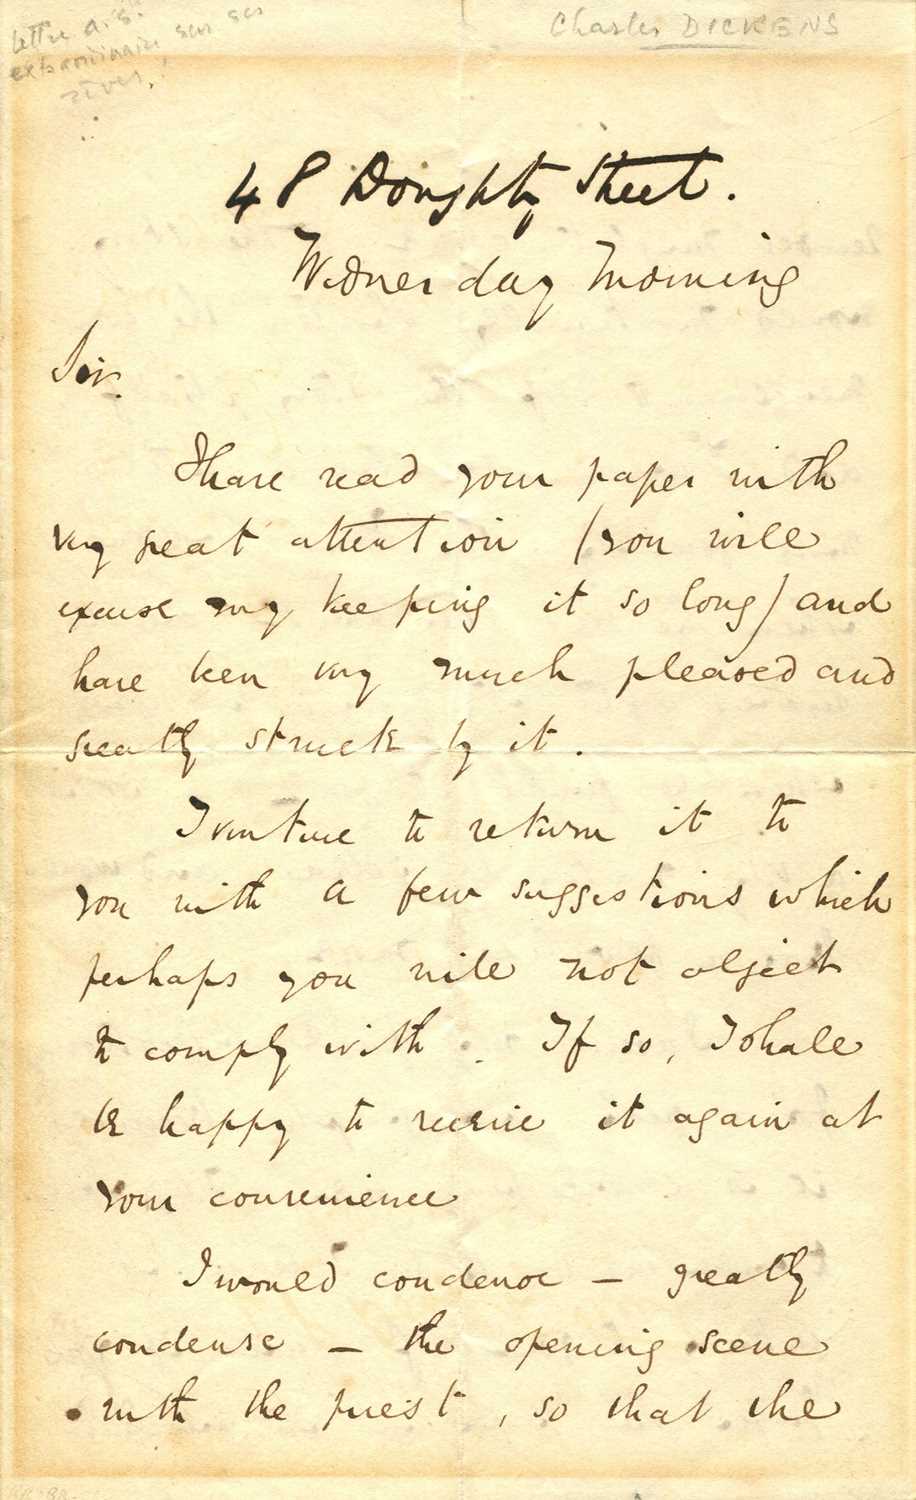 lettre a.s.
extraordinaire, sur ses
Charles DICKENS
48 Doughty Street.
Wednesday Morning
Sir.
I have read your paper with
very great attention (you will
excuse my keeping it so long) and
have been very much pleased and
greatly struck by it.
I venture to return it to
you with a few suggestions which
perhaps you will not object
to comply with. If so, I shall
be happy to receive it again at
your convenience
I would condense – greatly
condense – the opening scene
with the priest, so that the